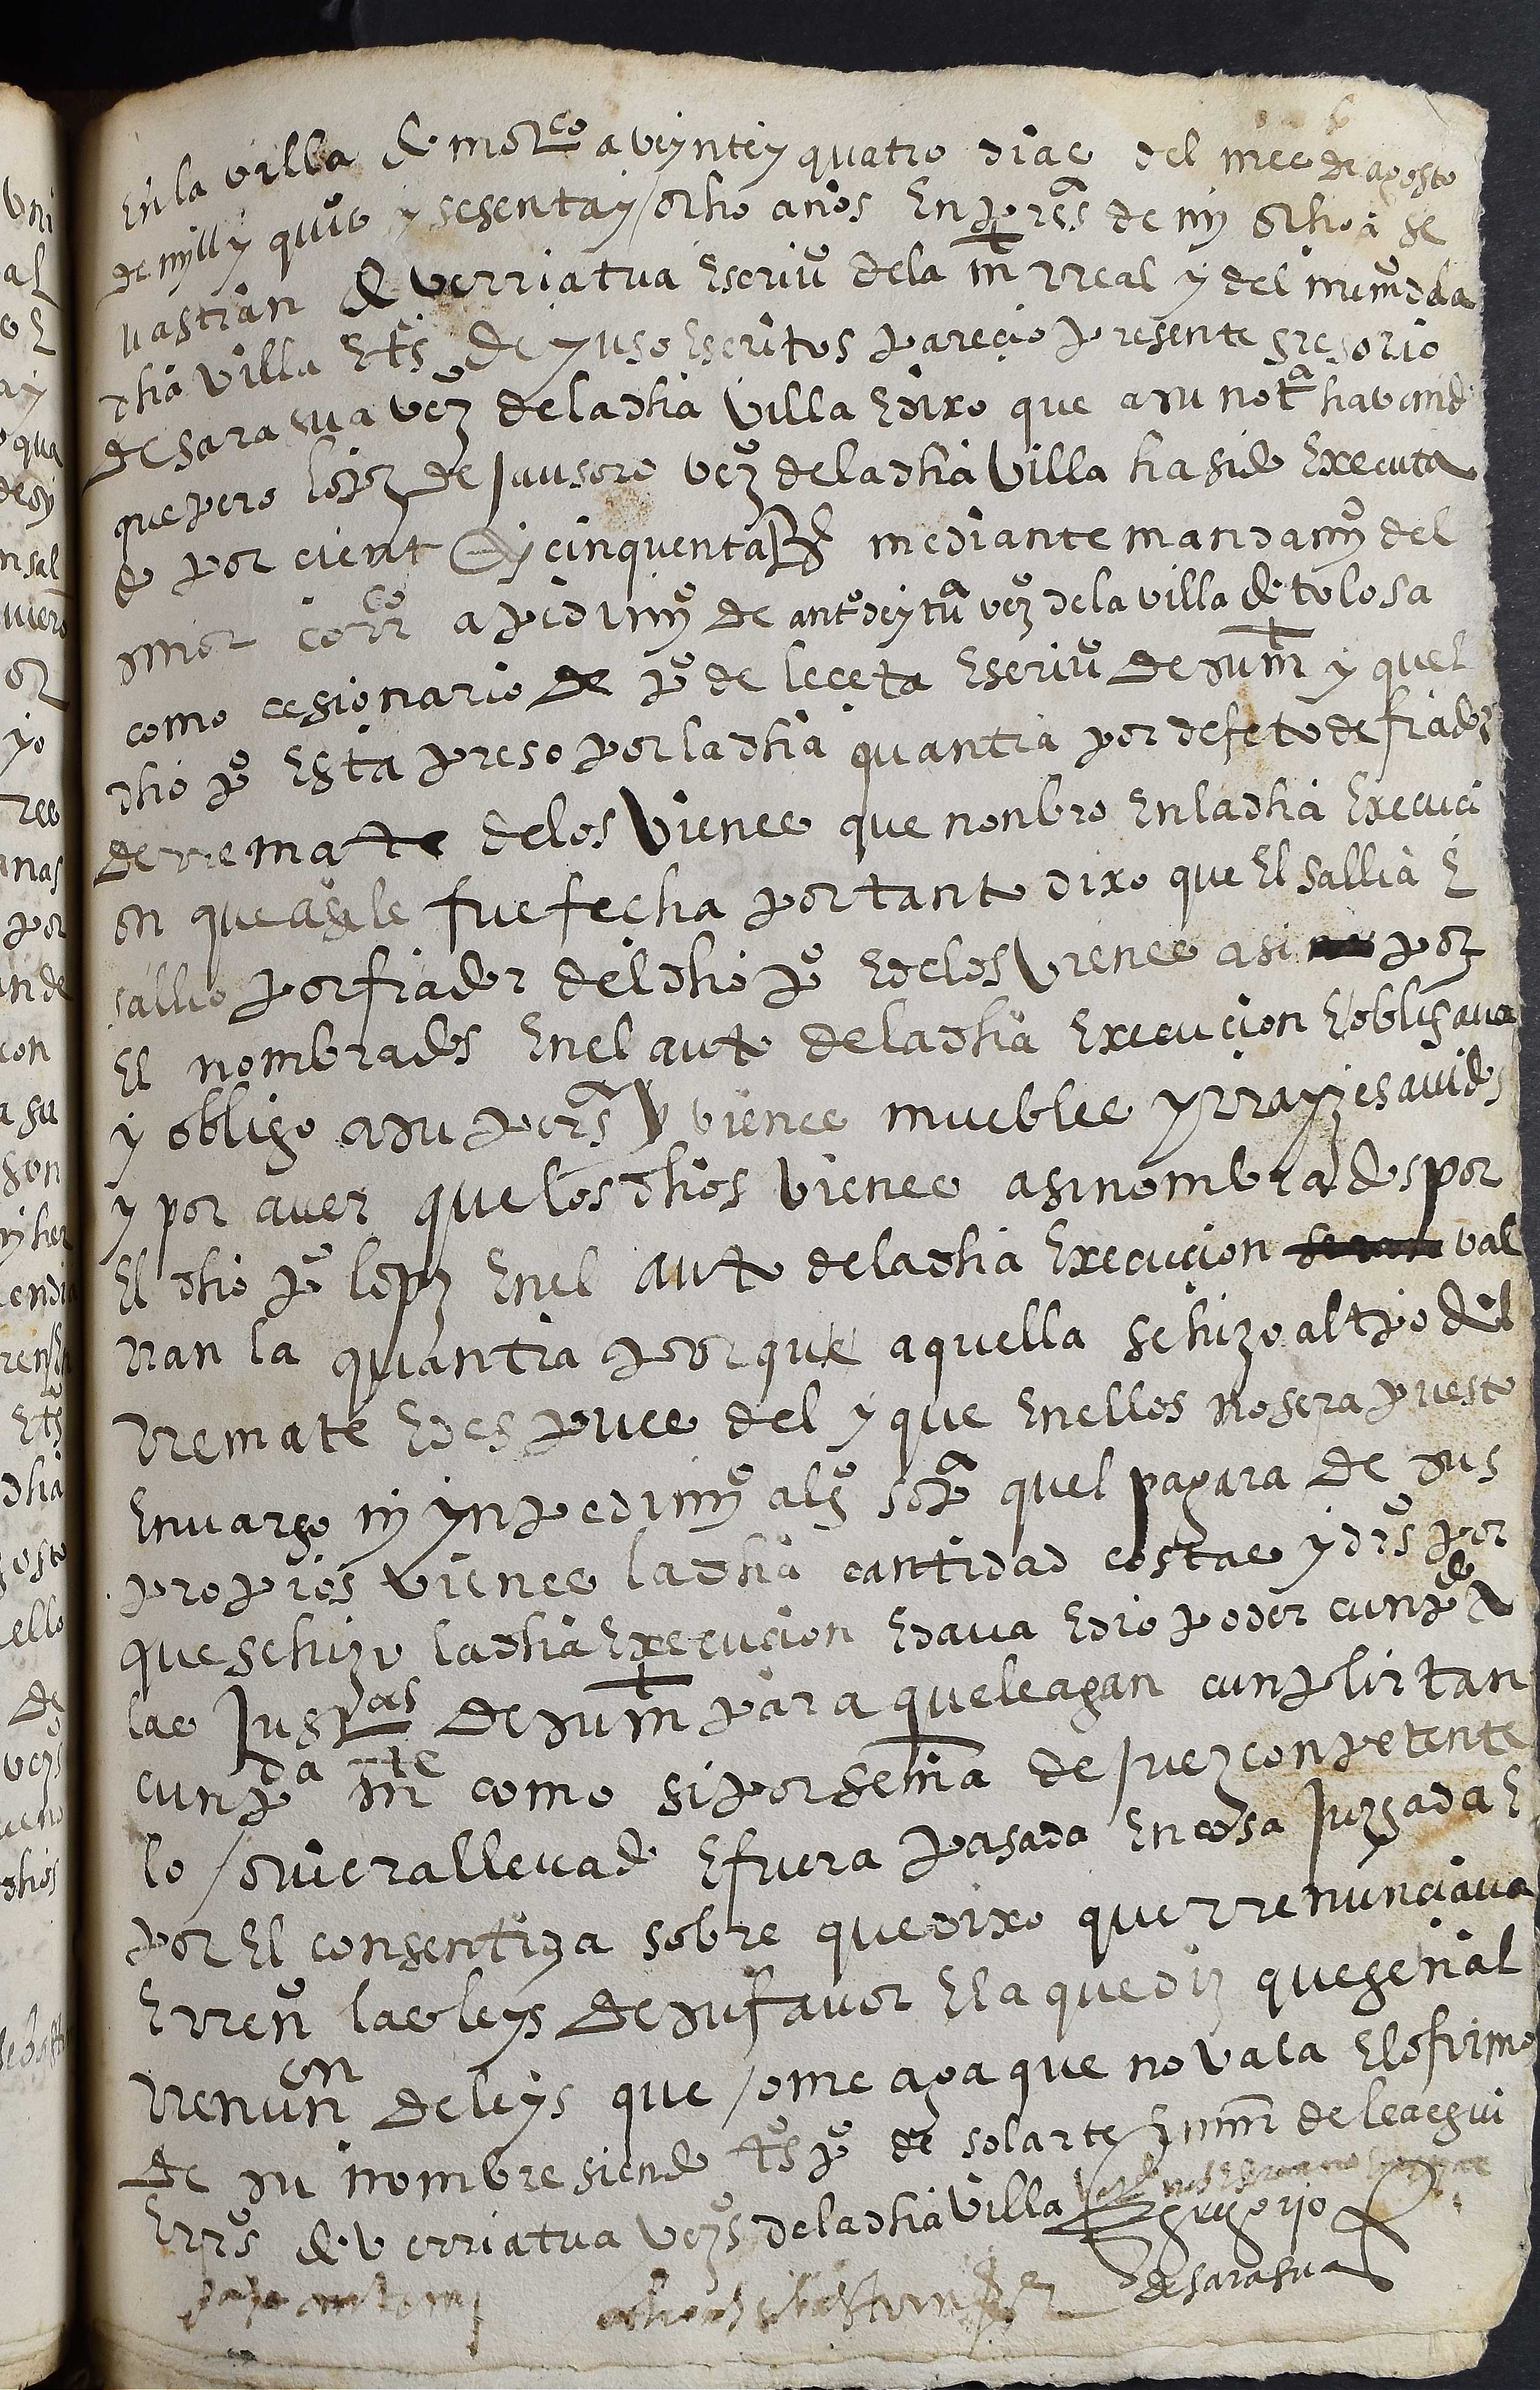 En la villa de motco a veynte y quatro dias del mes de agosto
de mill y quis y sesenta y ocho años En pres de my ochoa se
vastian de verriatua escriuo de la mt rreal y del numo de la
dha villa E ts de yuso escritos parecio presente gregorio
de sarasua vzo de la dha villa E dixo que a su nota ha venido
que pero lopz de sausoro vzo de la dha villa ha sido executa
do por ciento y cinquenta Rs mediante mandamyo del
senor corror a pedimyo de anto de ytua vzo de la villa de tolosa
como cesionario de po de leceta escriuo de su mt y quel
dho po Esta preso por la dha quantia por defeto de fiador
de rremate de los vienes que nonbro En la dha Execuci
on que asi le fue fecha por tanto dixo que El sallia E
sallio por fiador del dho po E de los vienes asi por
El nombrados En el auto de la dha Execucion E obligaua
y obligo a su persa y vienes muebles y rrayzes auidos
y por auer que los dhos vienes asi nombrados por
El dho po lopz En el auto de la dha Execucion val
dran la quantia por que aquella se hizo al tpo del
rremate E despues del y que En ellos no sera puesto
Envargo ny ynpedimyo algo so pa quel pagara de sus
propios vienes la dha cantidad costas y drs por
que se hizo la dha Execucion E daua E dio poder cunpdo a
las Justas de su mt para que le agan cunplir tan
cunpda mte como si por sema de Juez conpetente
lo ouiera lleuado E fuera pasada En cosa Juzgada E
por El consentida sobre que dixo que rrenunciaua
E rreno las leys de su favor E la que diz que general
rrenunon de leys que ome aga que no vala E lo firmo
de su nombre siendo ts po de solarte y mmr de leaegui
E de verriatua vzos de la dha villa
gregorio
de sarasua
paso ante my